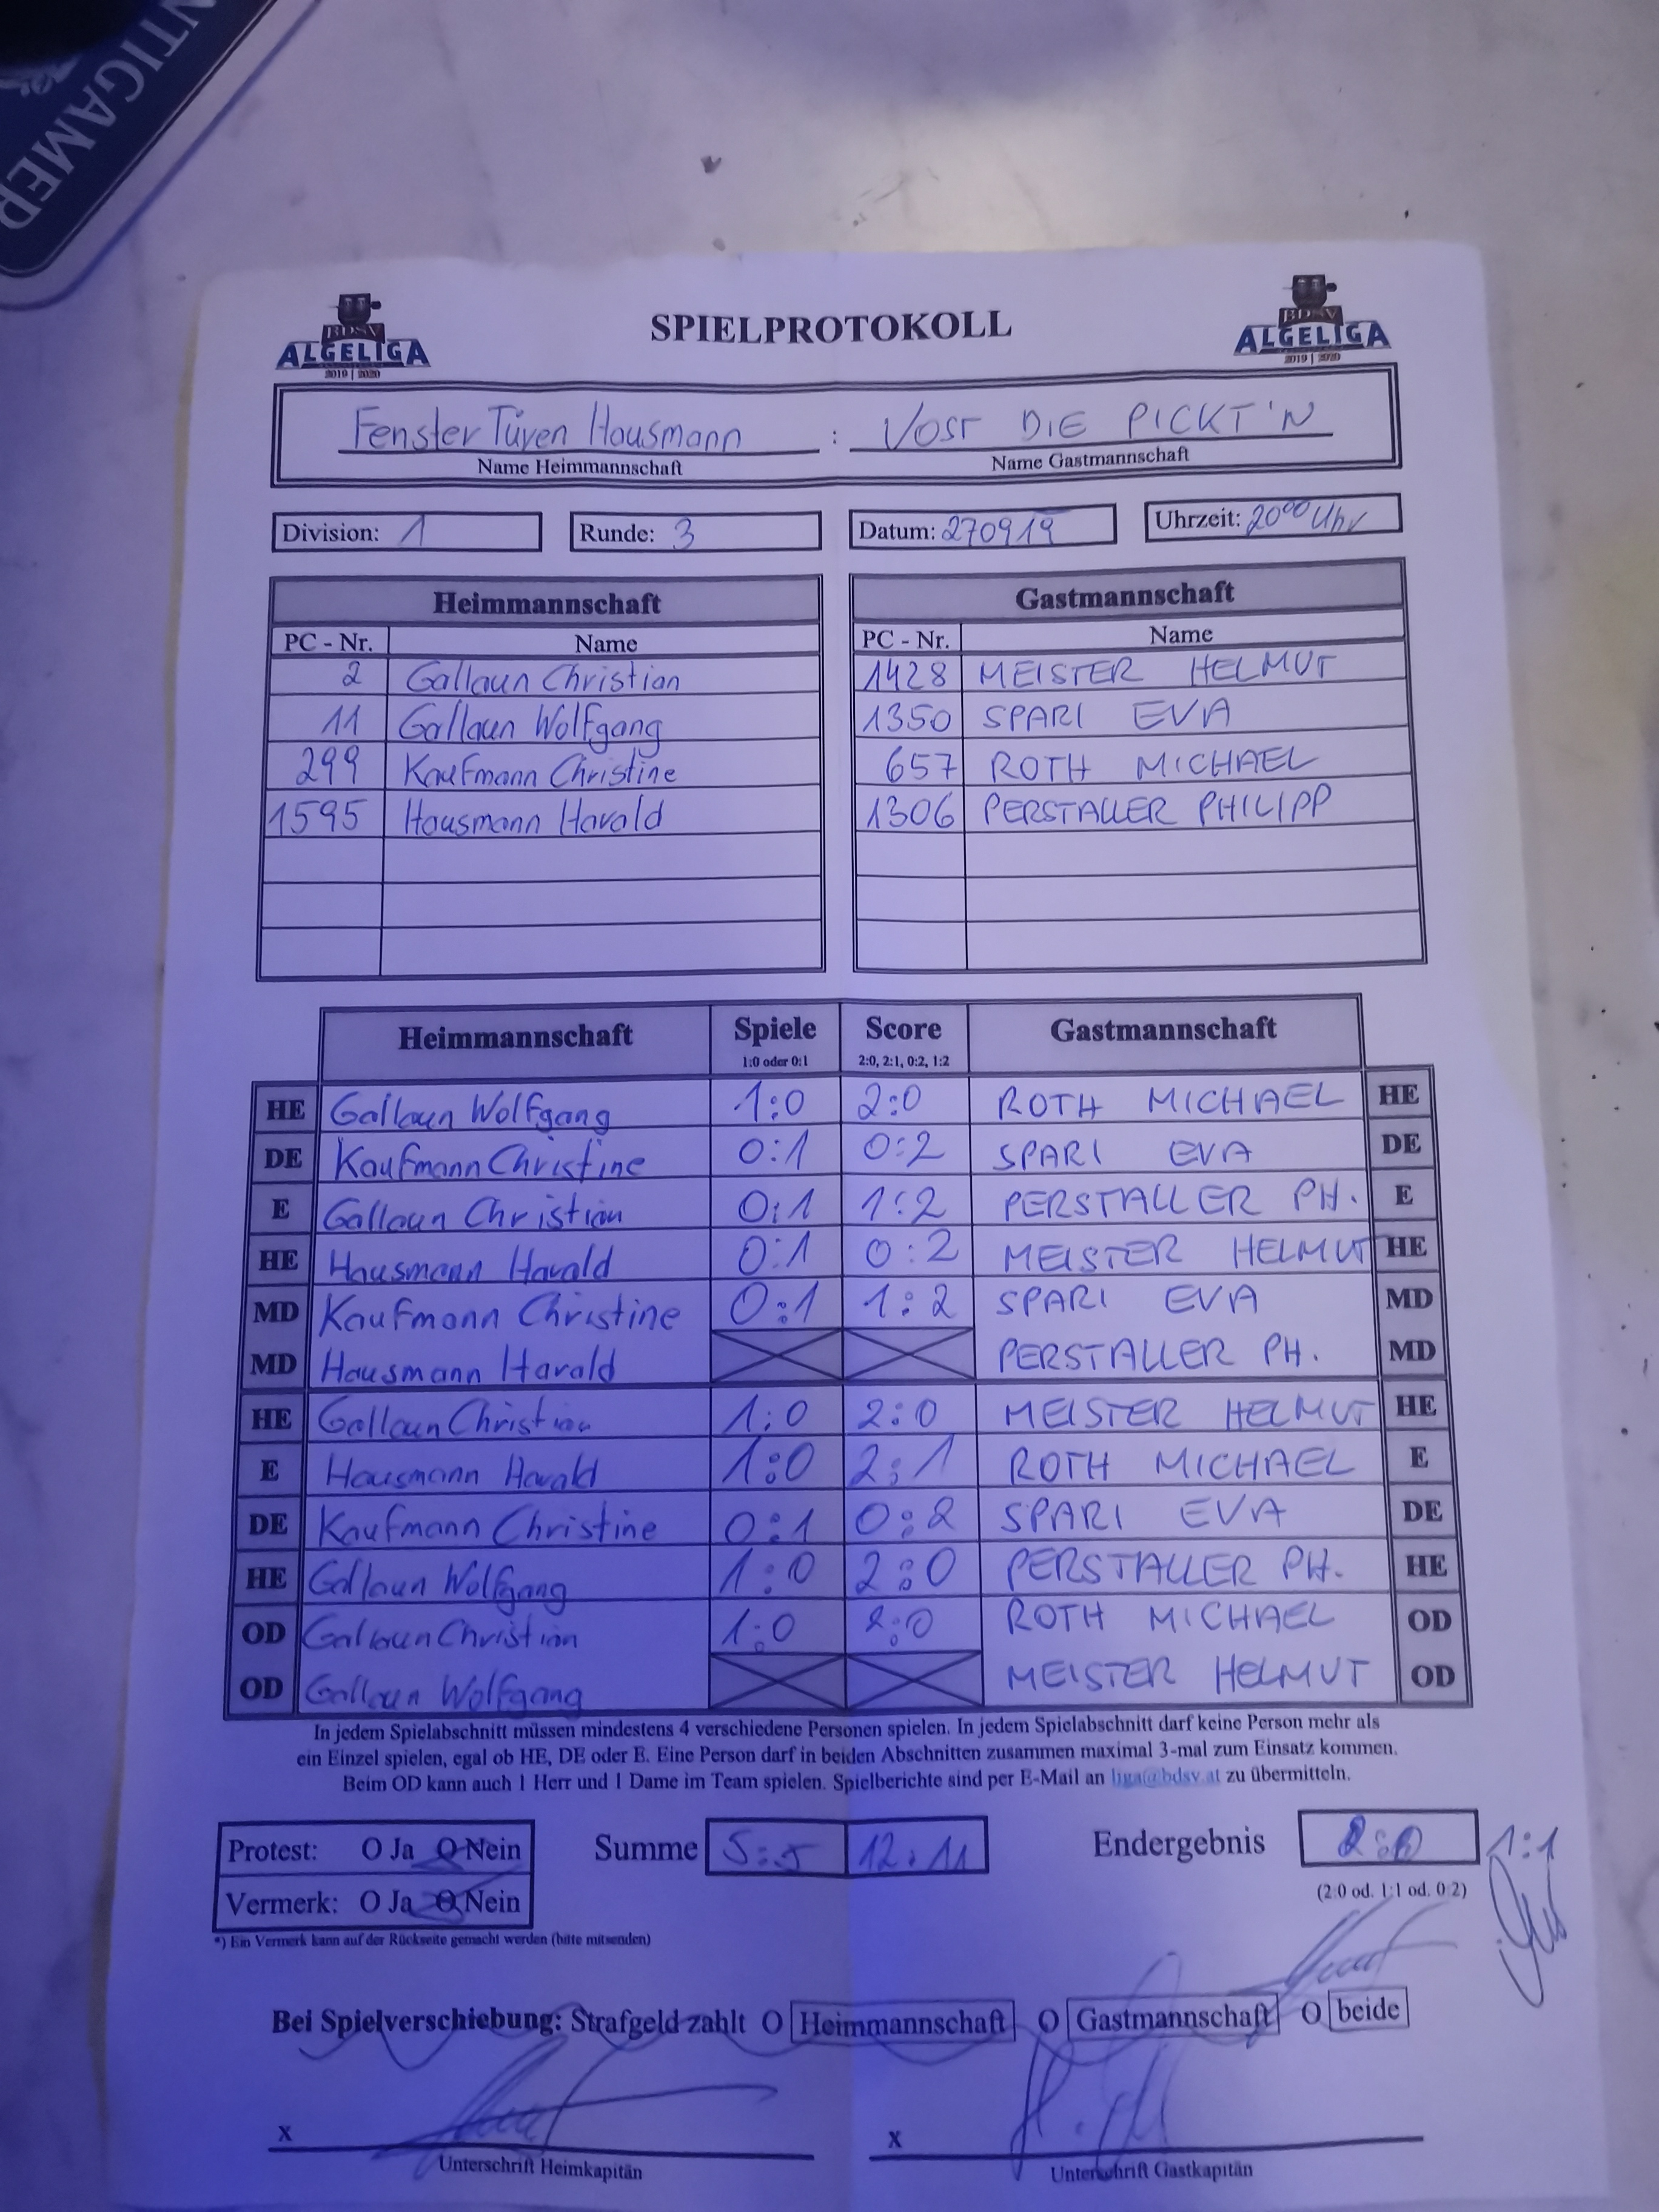 NTIGAMER
BDSV
ALGELIGA
2019 | 2020
SPIELPROTOKOLL
BDSV
ALGELIGA
2019 | 2020
Fenster Türen Hausmann : VOST DIE PICKT'N
Name Heimmannschaft Name Gastmannschaft
Division: 1 Runde: 3 Datum: 270919 Uhrzeit: 20⁰⁰ Uhr
Heimmannschaft Gastmannschaft
PC - Nr. Name PC - Nr. Name
2 Gallaun Christian 1428 MEISTER HELMUT
11 Gallaun Wolfgang 1350 SPARI EVA
299 Kaufmann Christine 657 ROTH MICHAEL
1595 Hausmann Harald 1306 PERSTALLER PHILIPP
Heimmannschaft Spiele Score Gastmannschaft
1:0 oder 0:1 2:0, 2:1, 0:2, 1:2
HE Gallaun Wolfgang 1:0 2:0 ROTH MICHAEL HE
DE Kaufmann Christine 0:1 0:2 SPARI EVA DE
E Gallaun Christian 0:1 1:2 PERSTALLER PH. E
HE Hausmann Harald 0:1 0:2 MEISTER HELMUT HE
MD Kaufmann Christine 0:1 1:2 SPARI EVA MD
MD Hausmann Harald PERSTALLER PH. MD
HE Gallaun Christian 1:0 2:0 MEISTER HELMUT HE
E Hausmann Harald 1:0 2:1 ROTH MICHAEL E
DE Kaufmann Christine 0:1 0:2 SPARI EVA DE
HE Gallaun Wolfgang 1:0 2:0 PERSTALLER PH. HE
OD Gallaun Christian 1:0 2:0 ROTH MICHAEL OD
OD Gallaun Wolfgang MEISTER HELMUT OD
In jedem Spielabschnitt müssen mindestens 4 verschiedene Personen spielen. In jedem Spielabschnitt darf keine Person mehr als
ein Einzel spielen, egal ob HE, DE oder E. Eine Person darf in beiden Abschnitten zusammen maximal 3-mal zum Einsatz kommen.
Beim OD kann auch 1 Herr und 1 Dame im Team spielen. Spielberichte sind per E-Mail an liga@bdsv.at zu übermitteln.
Protest: O Ja O Nein Summe 5:5 12:11 Endergebnis 1:1
Vermerk: O Ja O Nein (2:0 od. 1:1 od. 0:2)
*) Ein Vermerk kann auf der Rückseite gemacht werden (bitte mitsenden)
Bei Spielverschiebung: Strafgeld zahlt O Heimmannschaft O Gastmannschaft O beide
x x
Unterschrift Heimkapitän Unterschrift Gastkapitän